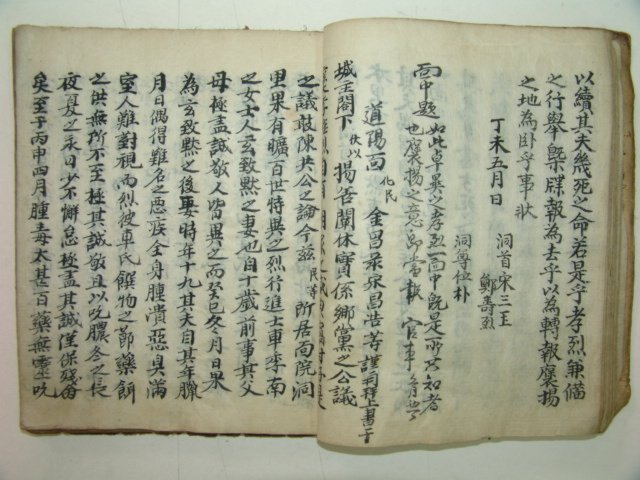 以續其夫幾死之命若是乎孝烈兼備
之行擧槩牒報爲去乎以爲轉報褒揚
之地爲卧乎事狀
丁未五月日
洞首宋三玉
鄭壽烈
洞尊位朴
面中題 如此卓異以孝烈一面中旣是所共知者
也褒揚之意卽當報 官事
道陽面 化民 金昌 宋昌浩等謹再拜上書于
城主閤下 伏以 揚善闡休實係鄕黨之公議
之議敢陳共公之論今玆 民等 所居面院洞
里果有曠百世特異之烈行進士車李南
之女士人玄致黙之妻也自十歲前事其父
母極盡誠敬人皆異之而癸巳冬月日果
爲玄致黙之後妻時年十九其夫自其年臘
月日偶得難名之惡疾全身腫潰惡臭滿
室人難對視而烈彼車氏饌物之節藥餌
之供無所不至極其誠敬且以吮膿冬之長
夜夏之永日少不懈怠極盡其誠僅保殘命
矣至于丙申四月腫毒太甚百藥無靈吮